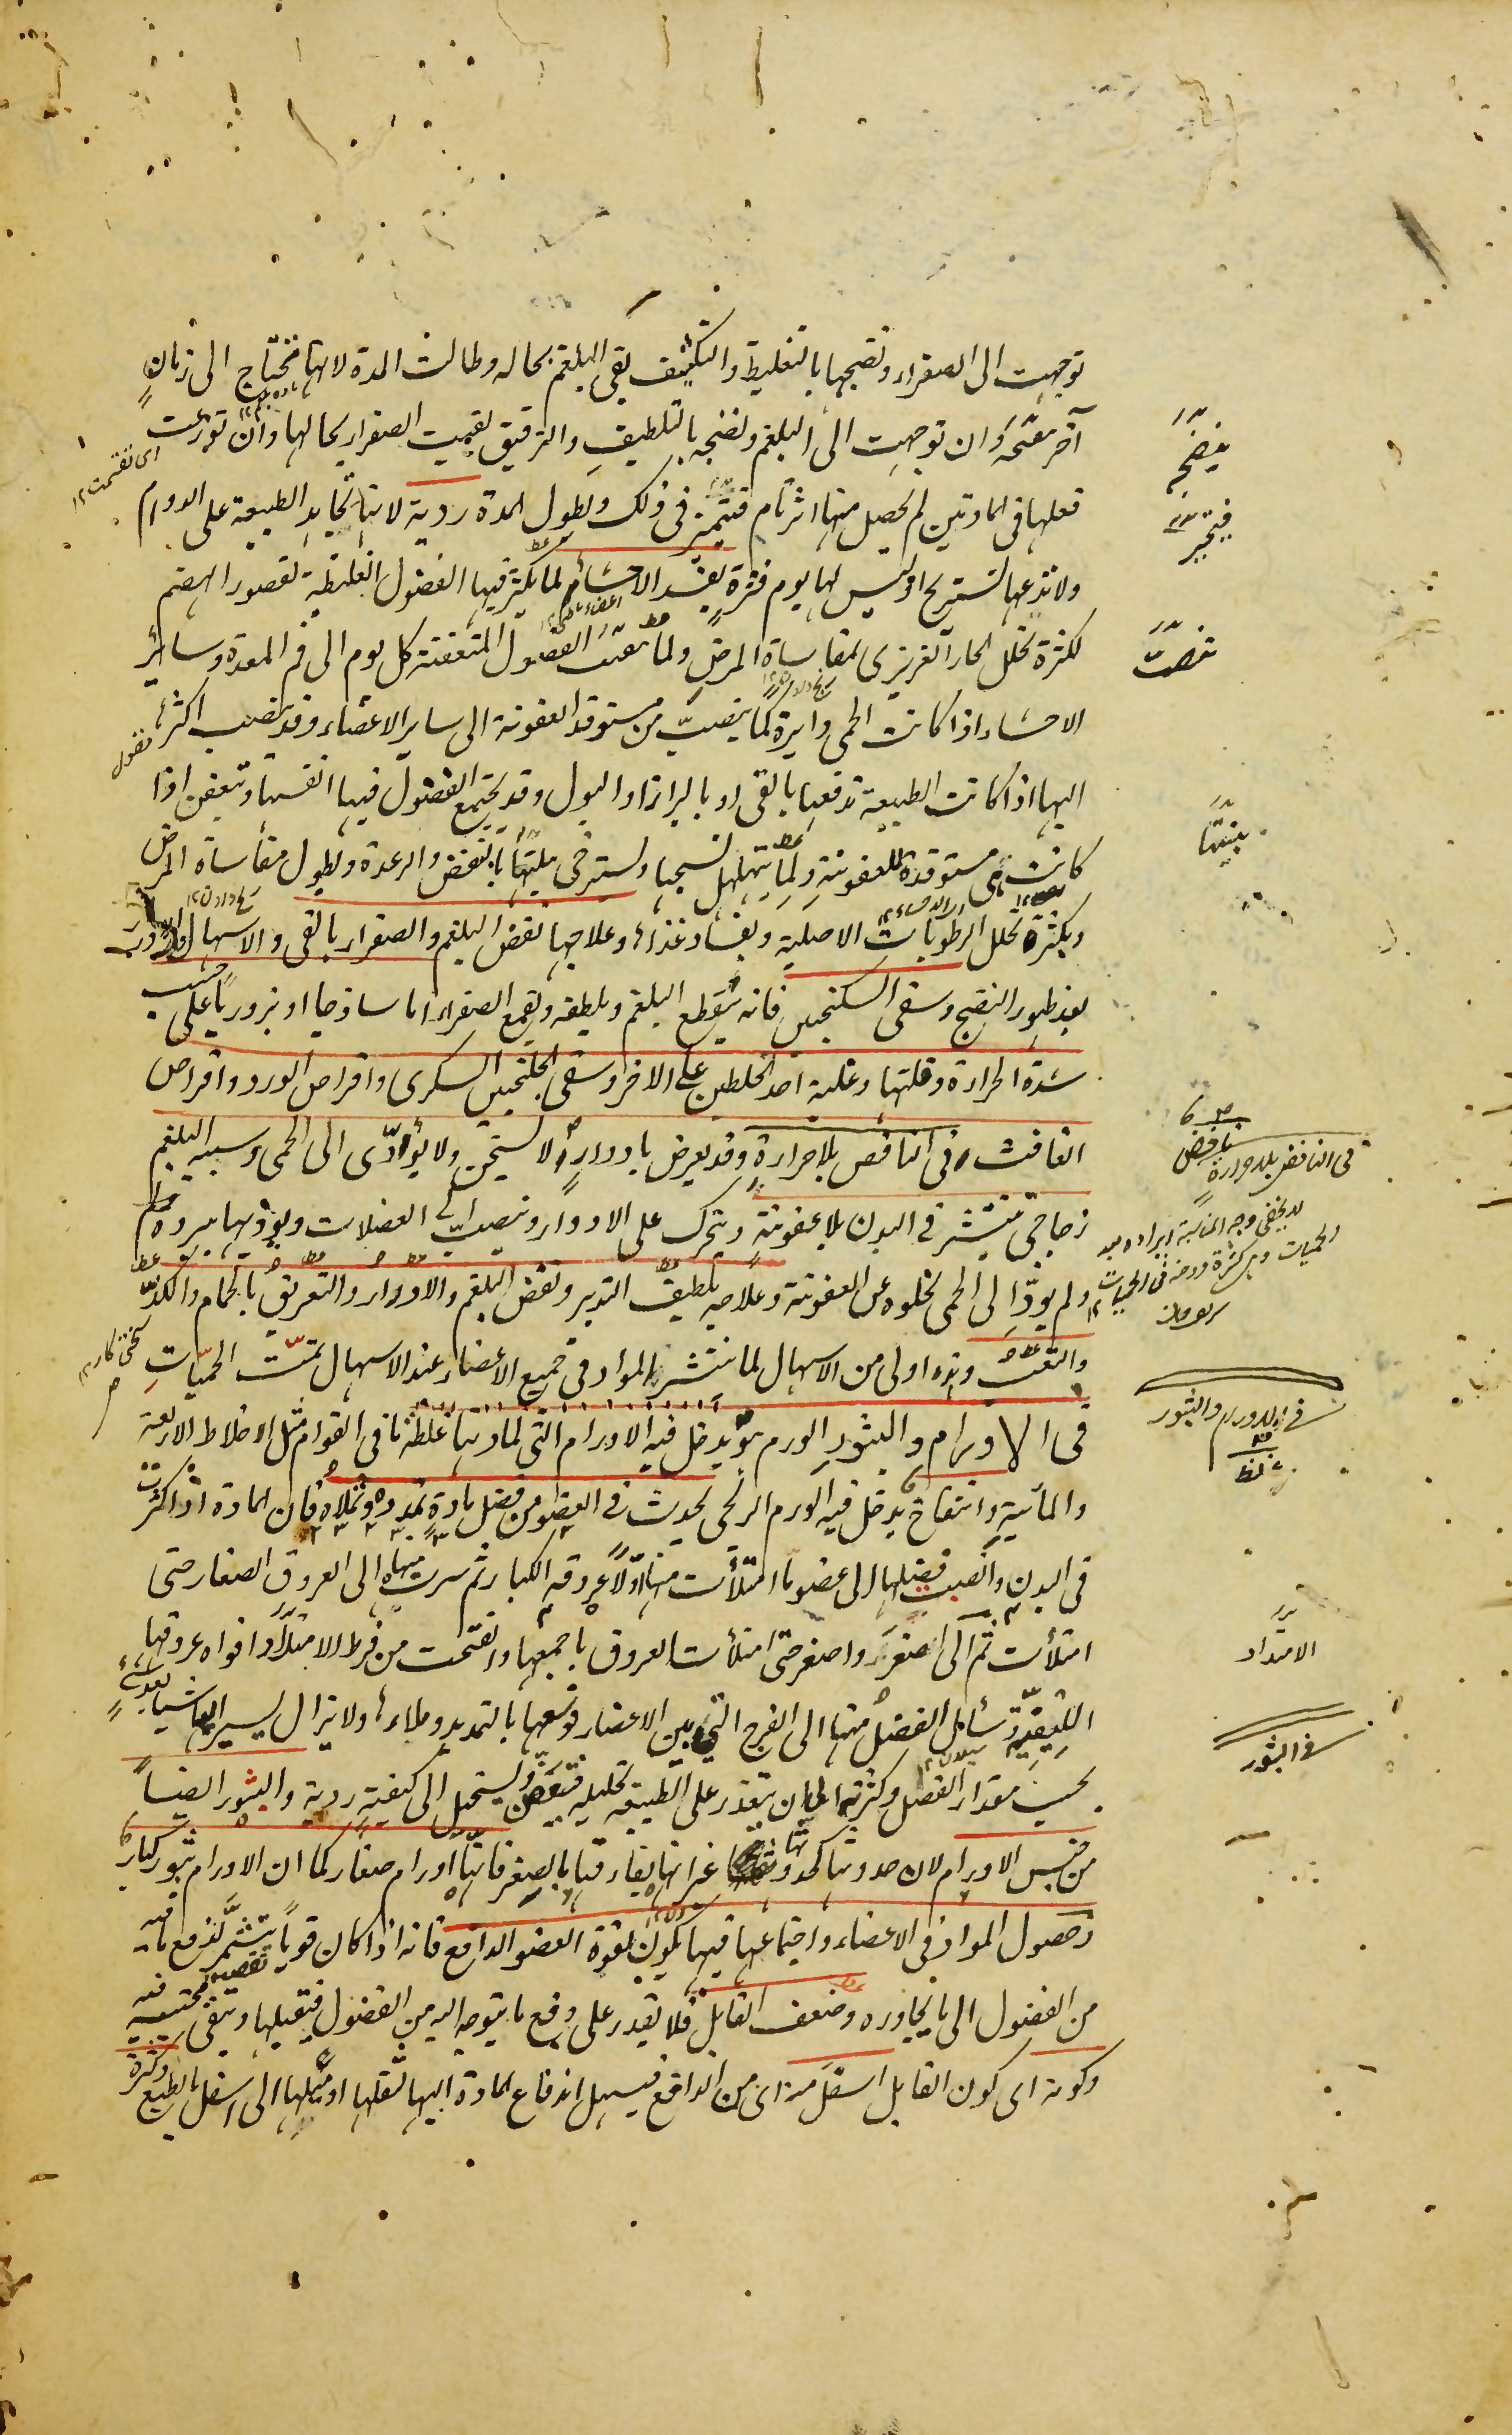 توجهت الى الصفراء ونضجها بالتغليظ والتكثيف بقى البلغم بحاله وطالت المدة لانها تحتاج الى زمان
آخر ينضجه وان توجهت الى البلغم ونضجه بالتلطيف والترقيق بقيت الصفراء بحالها وان توزعت
اى تقسمت ١٢
فعلها فى المادتين لم يحصل منها اثر تام فتتحير فى ذلك ولطول المدة ردية لانها تجاهد الطبيعة على الدوام
ولا تدعها تستريح اذ ليس لها يوم فترة يفسد الاحشاء لما يكثر فيها الفضول الغليظة لقصور الهضم
لكثرة تحلل الحار الغريزى لمقاساة المرض ولما تنصب الفضول المتعفنة كل يوم الى فم المعدة وسائر
الاحشاء اذا كانت الحمى دايرة كما ينصب من مستوقد العفونة الى ساير الاعضاء وقد ينصب اكثرها
اليها اذا كانت الطبيعة تدفعها بالقى او بالبراز او البول وقد يجتمع الفضول فيها انفسها وتتعفن اذا
كانت هى مستوقدة للعفونة ولما يتهلهل نسجها ويسترخى بنيتها بالنفض والرعدة ولطول مقاساة المرض
وبكثرة تحلل الرطوبات الاصلية وبفساد غذاءها وعلاجها نفض البلغم والصفراء بالقى والاسهال والادرار
بعد ظهور النضج وسقى السكنجبين فانه يقطع البلغم ويلطفه ويقمع الصفراء اما ساذجا او بزوريا على حسب
شدة الحرارة وقلتها وغلبة احد الخلطين على الاخر وسقى الجلنجبين السكرى واقراص الورد واقراص
الغافث فى النافض بلا حرارة وقد يعرض بادوار لا تسخن ولا يؤدى الى الحمى وسببه البلغم
زجاجى ينتشر فى البدن بلا عفونة ويتحرك على الادوار وينصب الى العضلات ويؤذيها ببرودة
ولم يود الى الحمى لخلوه عن العفونة وعلاجه بلطيف التدبير ونفض البلغم والادرار والتعريق بالحمام والدلك
والتعب وهذه اولى من الاسهال لما ينتشر المواد فى جميع الاعضاء عند الاسهال تمت الحميات
فى الاورام والبثور الورم يدخل فيه الاورام التى لمادتها غلظ ما فى القوام مثل الاخلاط الاربعة
والمائية وانتفاخ يدخل فيه الورم الريحى يحدث فى العضو من فضل مادة تمدده وتملاه فان المادة اذا كثرت
فى البدن وانصبت فضلها الى عضو ما امتلأت منها اولا عروقه الكبار ثم سرت منها الى العروق الصغار حتى
امتلأت ثم الى اصغر واصغر حتى امتلأت العروق باجمعها وانفتحت من فرط الامتلاء افواه عروقها
الليفية سأل الفضل منها الى الفرج التى بين الاعضاء فوسعها بالتمديد وملاءها ولا يزال يسير اليها شيأ بعد شئ
بحسب مقدار الفضل وكثرته الى ان يتعذر على الطبيعة تحليله فتتعفن ويستحيل الى كيفية ردية والبثور ايضا
من جنس الاورام لان حدوثها كحدوثها غير انها يفارقها بالصغر فانها اورام صغار كما ان الاورام بثور كبار
وحصول المواد فى الاعضاء واجتماعها فيها يكون لقوة العضو الدافع فانه اذا كان قويا يتشمر لدفع ما فيه
من الفضول الى ما يجاوره وضعف القابل فلا يقدر على دفع ما يتوجه اليه من الفضول فيقبلها ويبقى محتبسة فيه
وكونه اى كون القابل اسفل منه اى من الدافع فيسهل اندفاع المادة اليها لثقلها او ميلها الى اسفل بالطبع وكثرة
ينضجه
فيتحير
تنصب
بنيتها
نافض
فى النافض بلا حرارة
فى الاورام والبثور
غلظ
الامتداد
فى البثور